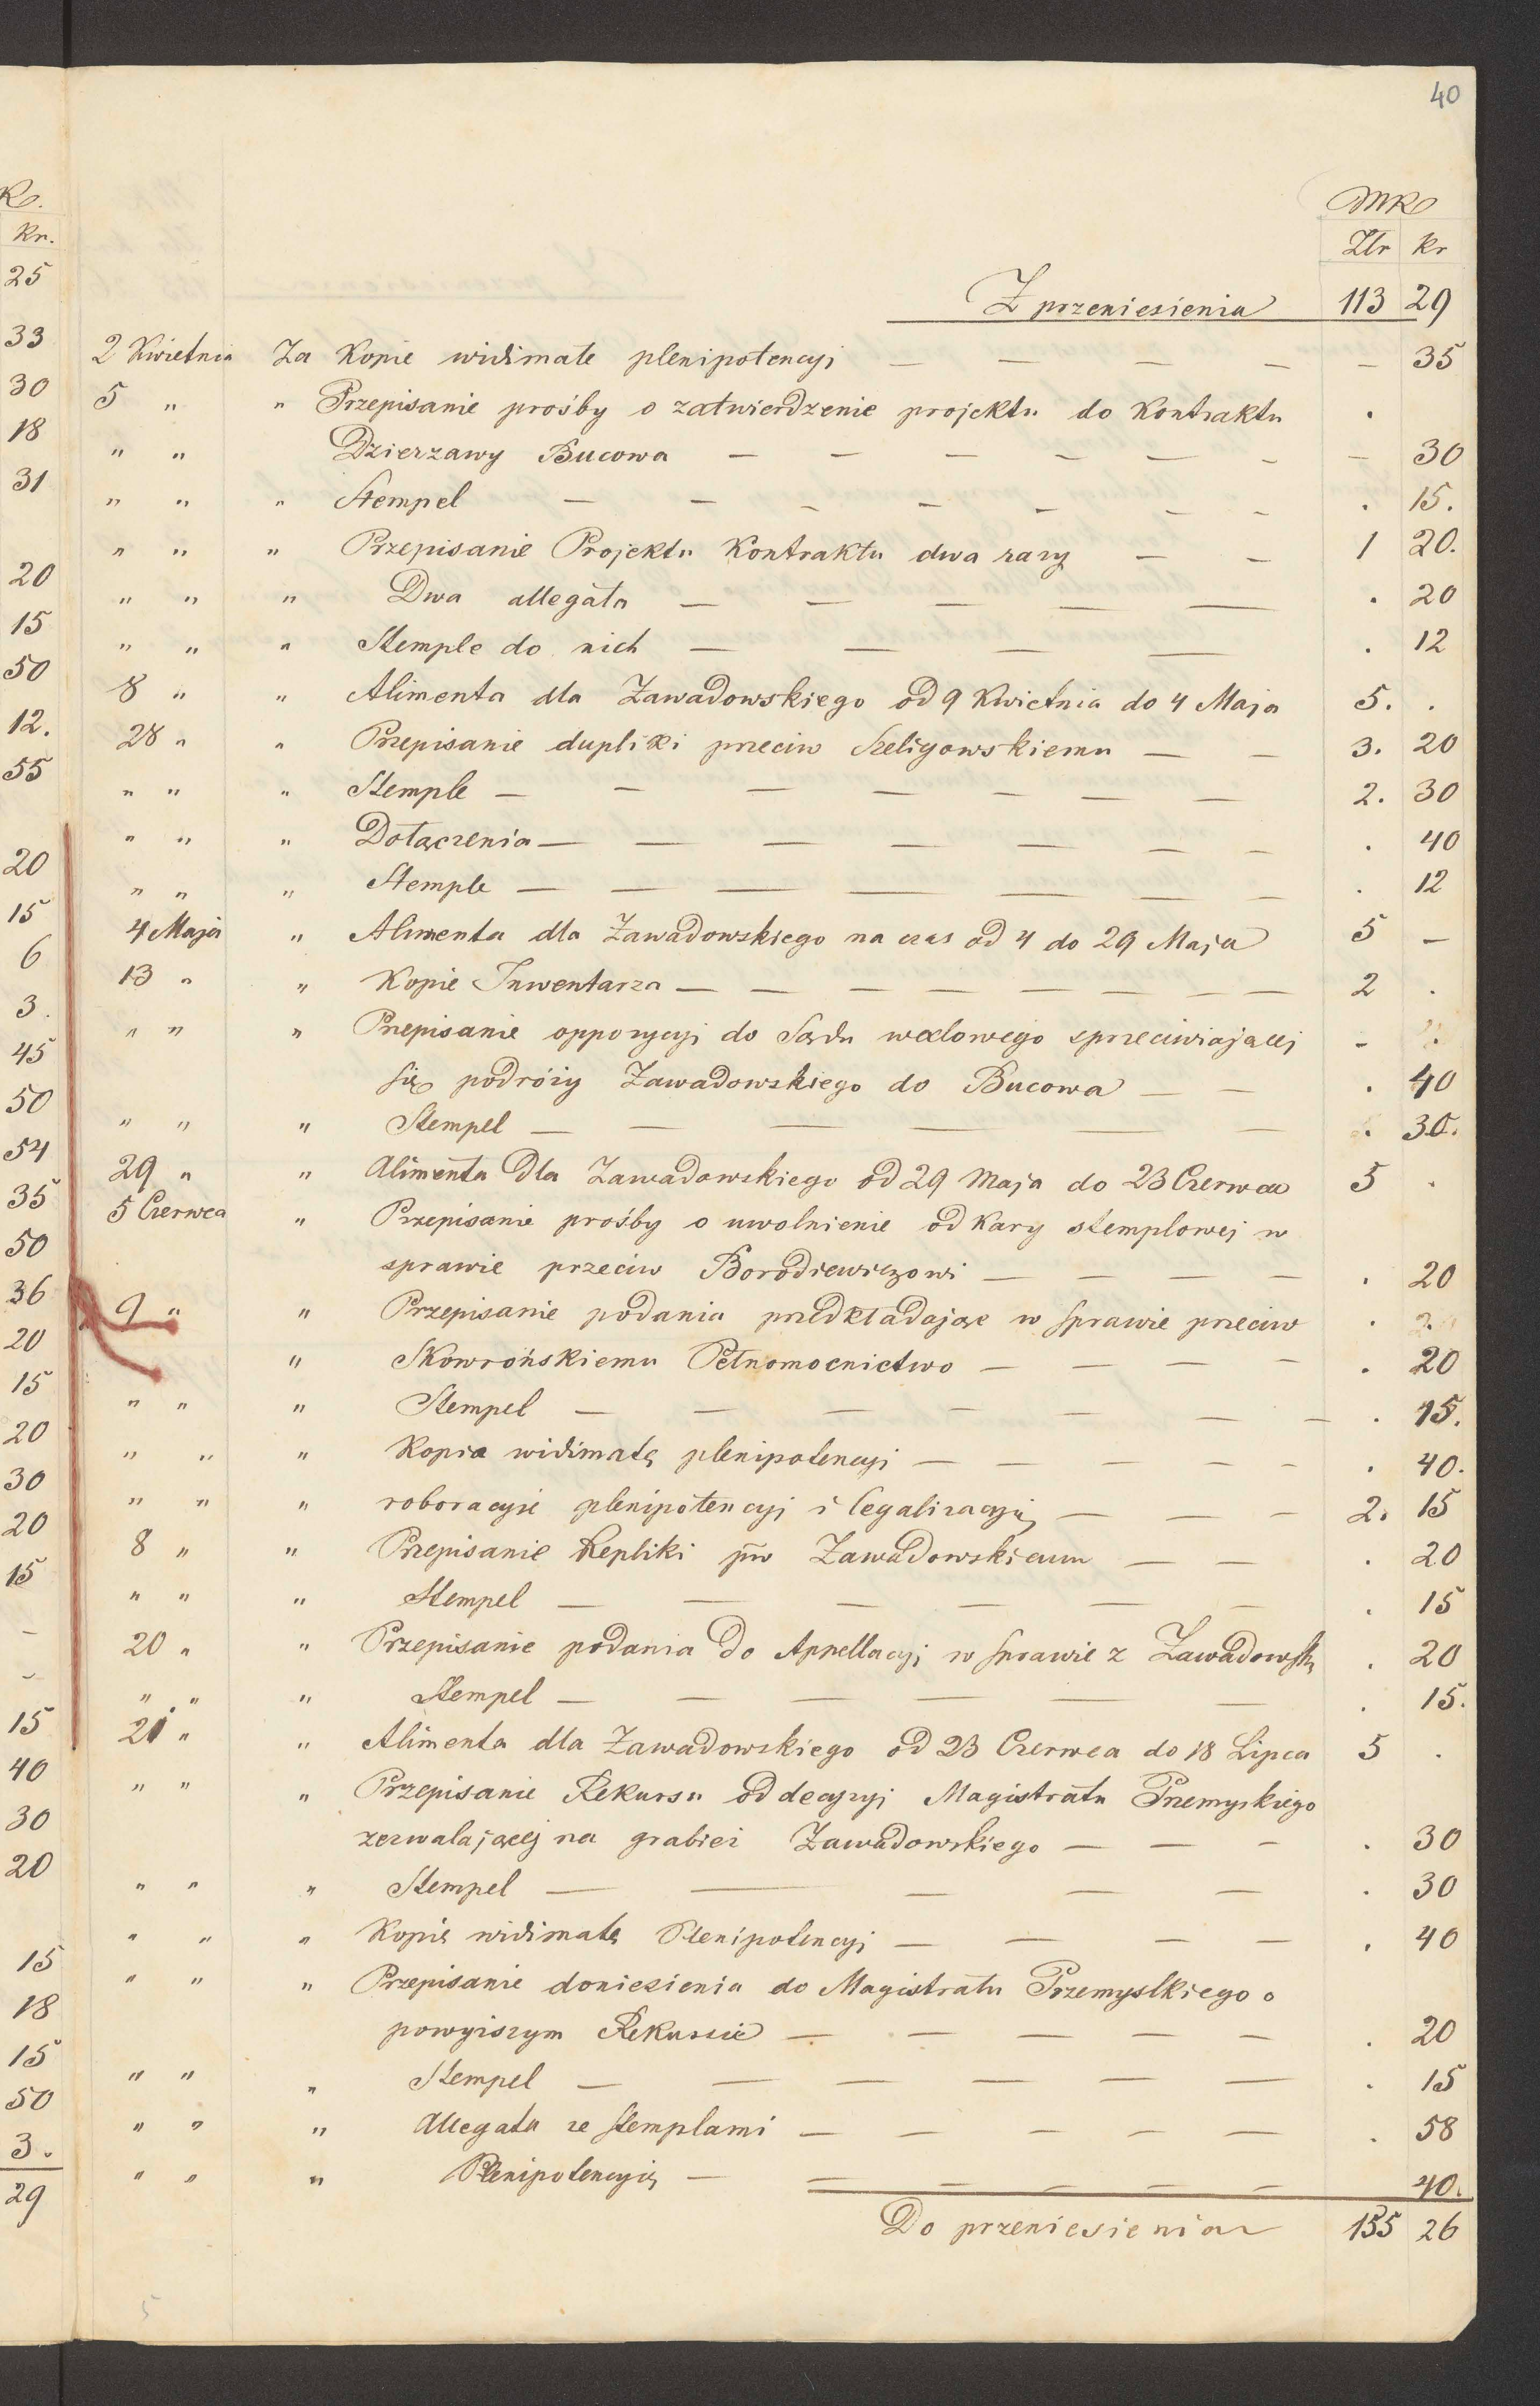 40
MK
Złr kr
Z przeniesienia 113 29
2 Kwietnia Za Kopie widimate plenipotencyi — — — — — 35
5 " " Przepisanie prośby o zatwierdzenie projektu do Kontraktu .
" " Dzierzawy Bucowa — — — — — — — 30
" " " Stempel — — — — — — — . 15.
" " " Przepisanie Projektu Kontraktu dwa razy — — 1 20.
" " " Dwa allegata — — — — — . 20
" " " Stemple do nich — — — — . 12
8 " " Alimenta dla Zawadowskiego od 9 Kwietnia do 4 Maja 5. .
28 " " Przepisanie dupliki przeciw Szeligowskiemu — — 3. 20
" " " Stemple — — — — — — — 2. 30
" " " Dołączenia — — — — — — — . 40
" " " Stemple — — — — — — — . 12
4 Maja " Alimenta dla Zawadowskiego na czas od 4 do 29 Maja 5 —
13 " " Kopie Inwentarza — — — — — — — — 2 .
" " " Przepisanie oppozycyi do Sądu wexlowego sprzeciwiającej - .
się podróży Zawadowskiego do Bucowa — — . 40
" " " Stempel — — — — — — . 30.
29 " " Alimenta Dla Zawadowskiego od 29 Maja do 23 Czerwca 5 .
5 Czerwca " Przepisanie prośby o uwolnienie od Kary stemplowej w
sprawie przeciw Borodziewiczowi — — — — . 20
9 " " Przepisanie podania przedkładając w sprawie przeciw .
" Skowrońskiemu Pełnomocnictwo — — — — . 20
" " " Stempel — — — — — — — . 15.
" " " Kopia widimatę plenipotencyi — — — — — . 40.
" " " roboracyje plenipotencyi i legalizacyią — — — 2. 15
8 " " Przepisanie Repliki pw Zawadowskiemu — — . 20
" " " Stempel — — — — — — . 15
20 " " Przepisanie podania Do Appellacyi w sprawie z Zawadowsk . 20
" " " Stempel — — — — — — . 15.
21 " " Alimenta dla Zawadowskiego od 23 Czerwca do 18 Lipca 5 .
" " " Przepisanie Rekursu od decyzyi Magistratu Przemyskiego
zezwalającej na grabież Zawadowskiego — — — . 30
" " " Stempel — — — — — . 30
" " " Kopię widimatę Plenipotencyi — — — — . 40
" " " Przepisanie doniesienia do Magistratu Przemyslkiego o
powyższym Rekursie — — — — — . 20
" " " Stempel — — — — — — . 15
" " " Allegata ze stemplami — — — — — . 58
" " " Plenipotencyią — — — — — — 40.
Do przeniesienia 155 26
5
K.
kr.
25
33
30
18
31
20
15
50
12.
55
20
15
6
3.
45
50
54
35
50
36
20
15
20
30
20
15
–
–
15
40
30
20
15
18
15
50
3.
29